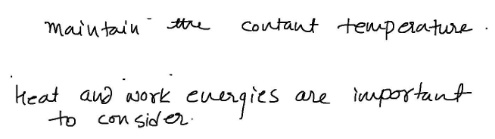 maintain the contant temperature.
Heat and work energies are important
to consider.